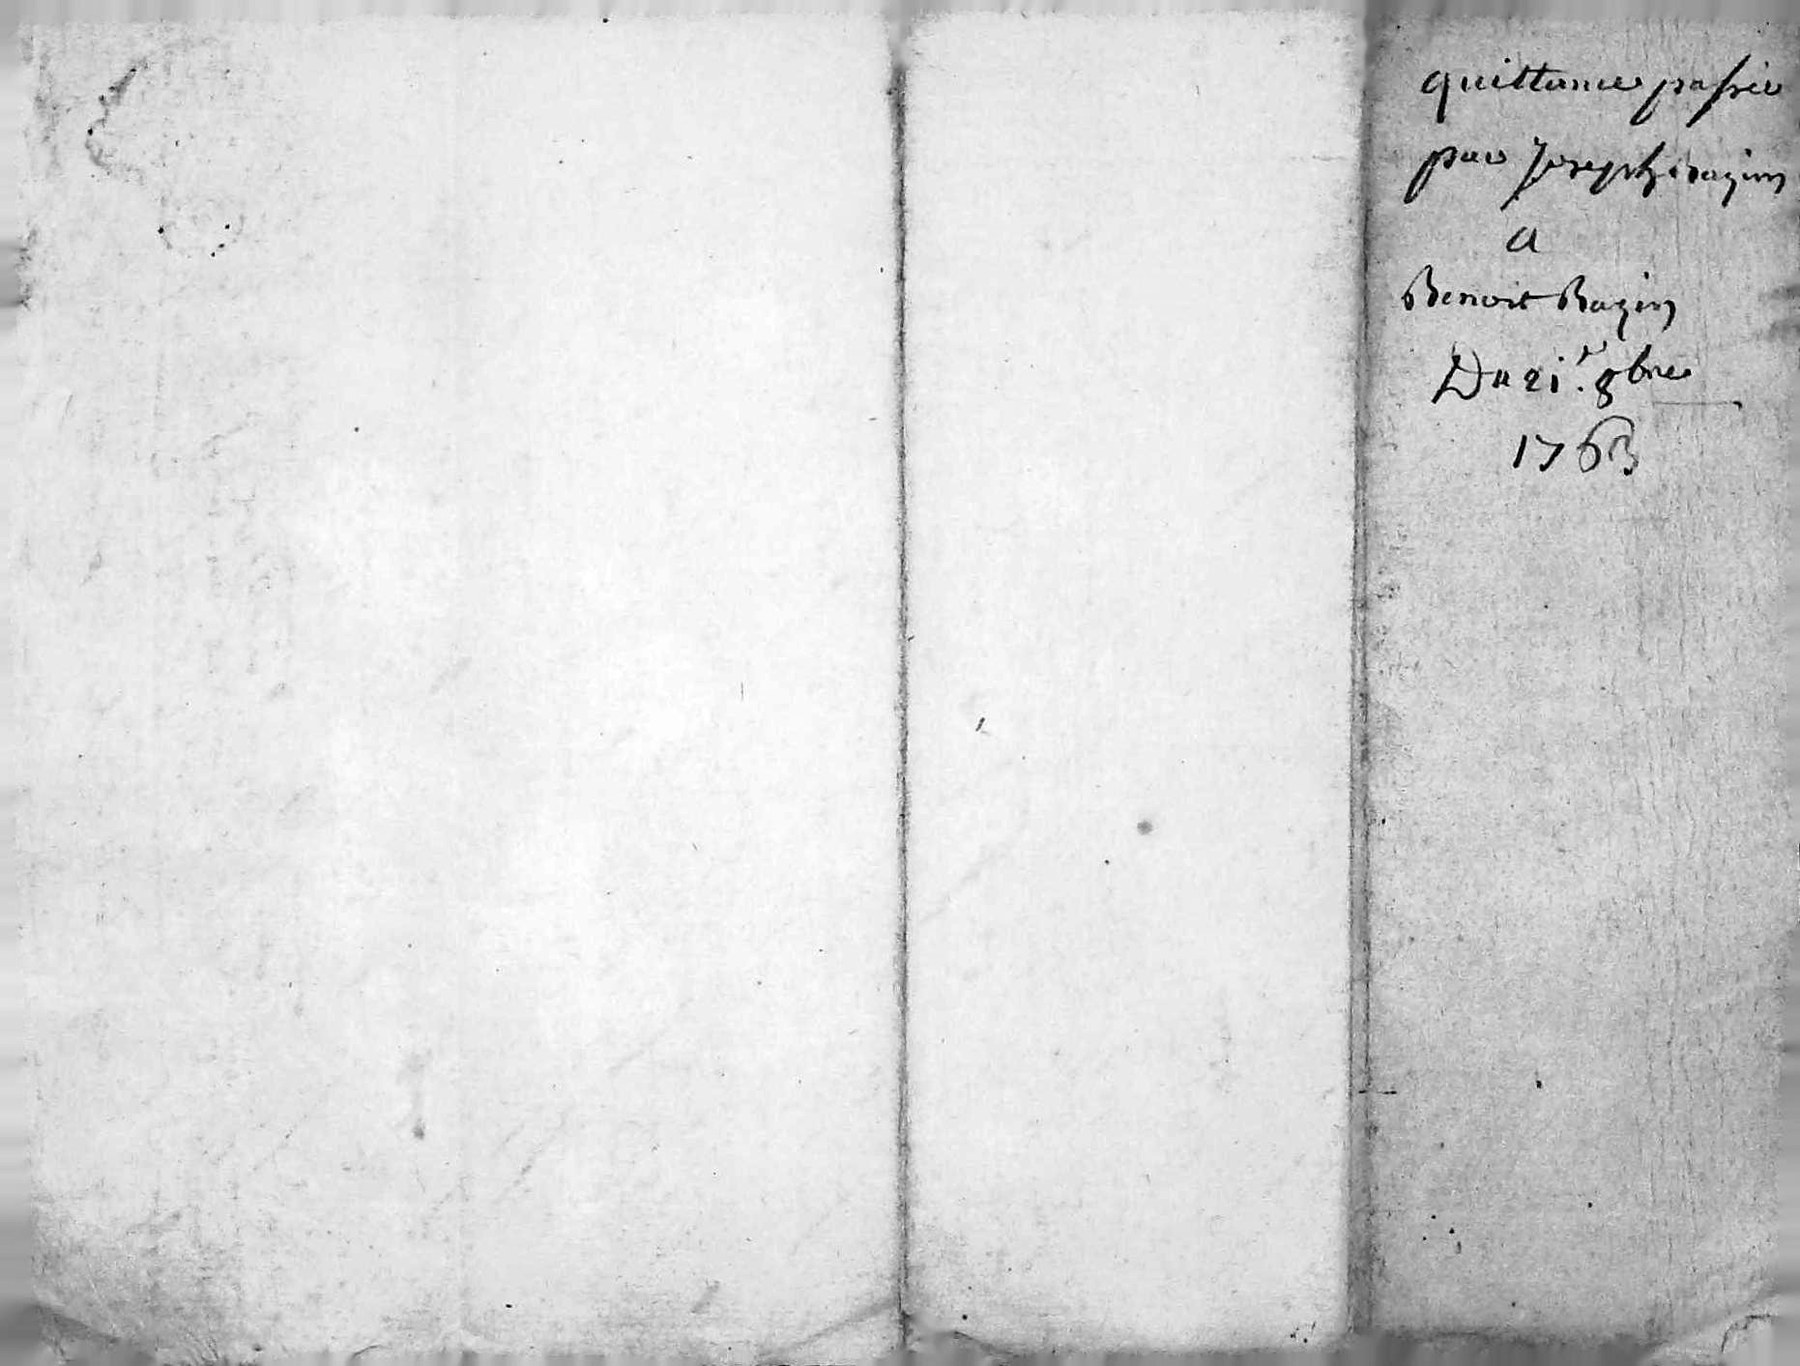 quittance passée
par Joseph Bazin
a
Benoit Bazin
Du 21.r 8bre
1763